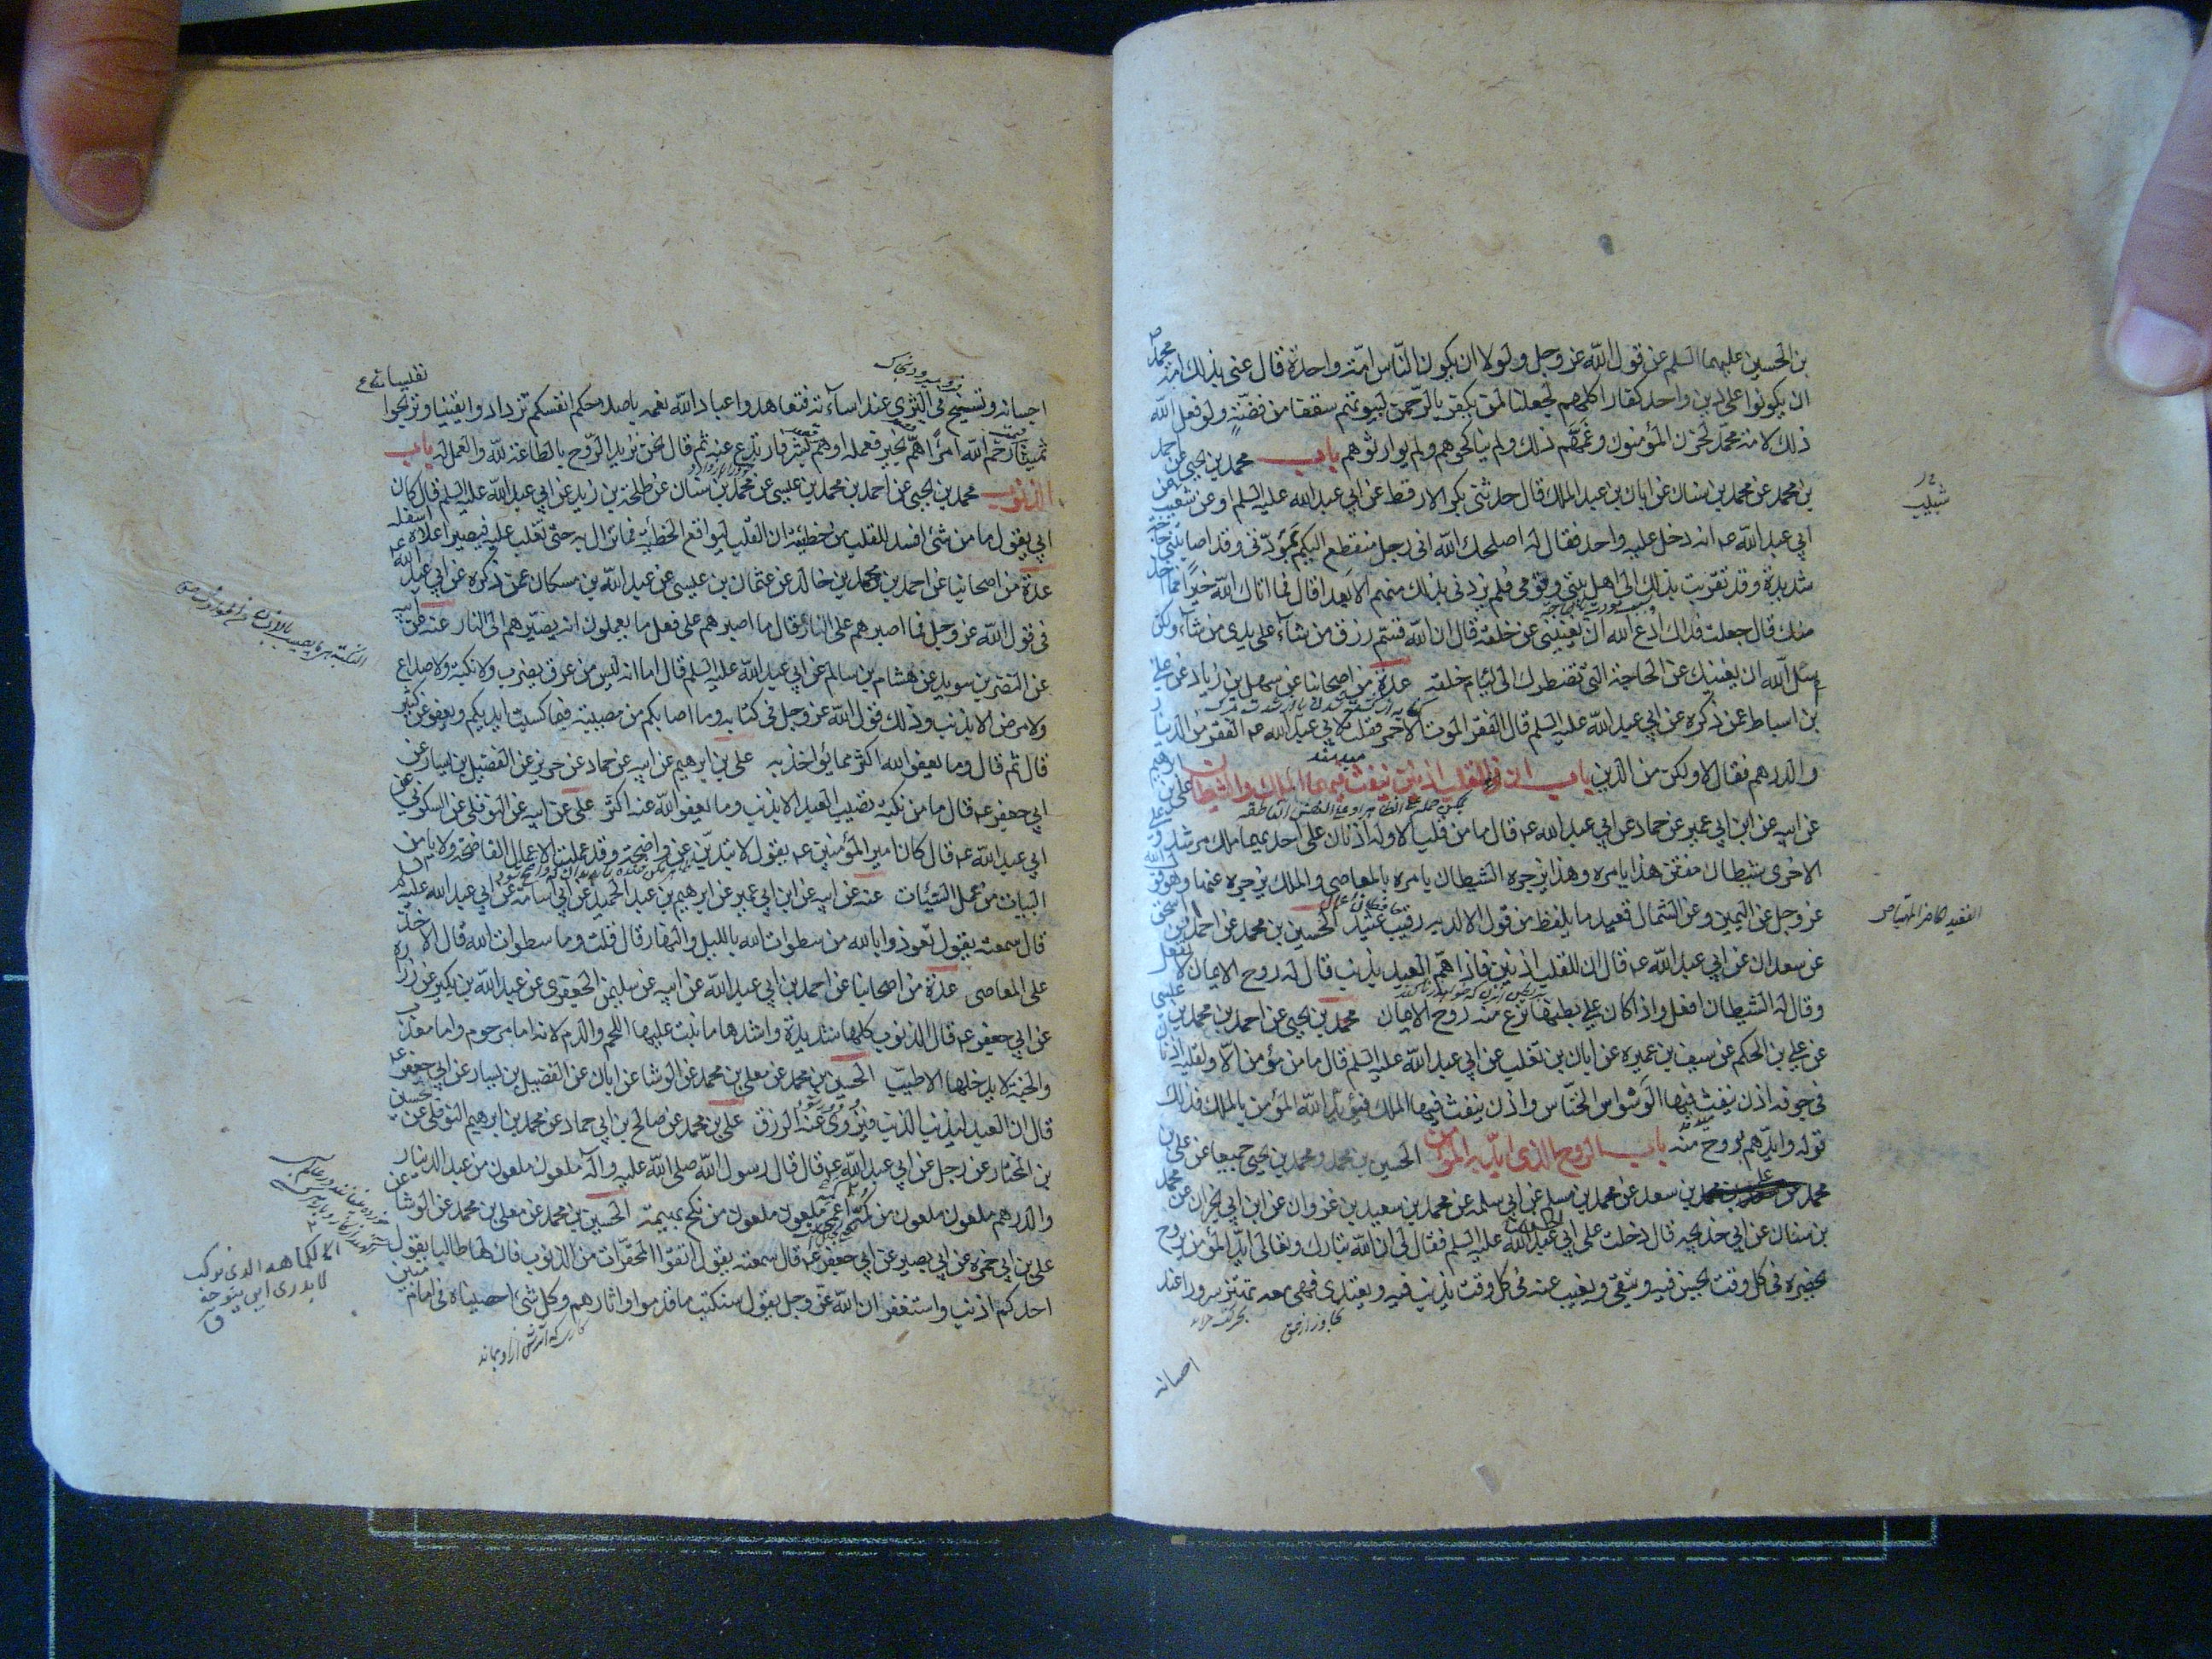 بن الحسين عليهما السلم عن قول الله عز وجل ولولا ان يكون الناس امة واحدة قال عنى بذلك امة محمد ص
ان يكونوا على دين واحد كفارا كلهم لجعلنا لمن يكفر بالرحمن لبيوتهم سقفا من فضة ولو فعل الله
ذلك لامة محمد لحزن المؤمنون وغمهم ذلك ولم يناكحوهم ولم يوارثوهم باب محمد بن يحيى عن احمد
بن محمد عن محمد بن سنان عن ابان بن عبد الملك قال حدثنى بكر الارقط عن ابي عبد الله عليه السلم وعن شعيب عن
شبيب
ابي عبد الله ع انه دخل عليه واحد فقال له اصلحك الله انى رجل منقطع اليكم بمودتى وقد اصابتنى حاجة
شديدة وقد تقربت بذلك الى اهل بيتى وقومى فلم يزدنى بذلك منهم الا بعدا قال فما اتاك الله خيرا مما اخذ
منك قال جعلت فداك ادع الله ان يغنينى عن خلقه قال ان الله قسم رزق من شاء على يدى من شاء ولكن
سئل الله ان يغنيك عن الحاجة التى تضطرك الى لئام خلقه عدة من اصحابنا عن سهل بن زياد عن على
بن اسباط عن ذكره عن ابي عبد الله عليه السلم قال الفقر الموت الاحمر فقلت لابي عبد الله ع الفقر من الدينار
والدرهم فقال لا ولكن من الدين باب ان للقلب اذنين ينفث فيهما الملك والشيطان على بن ابرهيم
عن ابيه عن ابن ابي عمير عن حماد عن ابي عبد الله ع قال ما من قلب الا وله اذنان على احديهما ملك مرشد وعلى
الاخرى شيطان مفتن هذا يامره وهذا يزجره الشيطان يامره بالمعاصي والملك يزجره عنها وهو قول الله
عز وجل عن اليمين وعن الشمال قعيد ما يلفظ من قول الا لديه رقيب عتيد الحسين بن محمد عن احمد بن اسحق
عن سعدان عن ابي عبد الله ع قال ان للقلب اذنين فاذا هم العبد بذنب قال له روح الايمان لا تفعل
وقال له الشيطان افعل واذا كان على بطنها نزع منه روح الايمان محمد بن يحيى عن احمد بن محمد بن عيسى
عن على بن الحكم عن سيف بن عميرة عن ابان بن تغلب عن ابي عبد الله عليه السلم قال ما من مؤمن الا ولقلبه اذنان
فى جوفه اذن ينفث فيها الوسواس الخناس واذن ينفث فيها الملك فيؤيد الله المؤمن بالملك فذلك
قوله وايدهم بروح منه باب الروح الذى ايد به المؤمن الحسين بن محمد ومحمد بن يحيى جميعا عن على بن
محمد بن سعد عن محمد بن مسلم عن ابي سلمه عن محمد بن سعيد بن غزوان عن ابن ابي نجران عن محمد
بن سنان عن ابي خديجه قال دخلت على ابي الحسن عليه السلم فقال لى ان الله تبارك وتعالى ايد المؤمن بروح
تحضره فى كل وقت يحسن فيه ويتقى وتغيب عنه فى كل وقت يذنب فيه ويعتدى فهى معه تهتز سرورا عند
احسانه
احسانه وتسيخ فى الثرى عند اساءته فتعاهدوا عباد الله نعمه باصلاحكم انفسكم تزدادوا يقينا وتربحوا نفيسا
ثمينا رحم الله امرأ هم بخير فعمله او هم بشر فارتدع عنه ثم قال نحن نزيد الروح بالطاعة لله والعمل له باب
الذنوب محمد بن يحيى عن احمد بن محمد بن عيسى عن محمد بن سنان عن طلحة بن زيد عن ابي عبد الله عليه السلم قال كان
ابي يقول ما من شئ افسد للقلب من خطيئة ان القلب ليواقع الخطيئة فما تزال به حتى تغلب عليه فيصير اعلاه اسفله
عدة من اصحابنا عن احمد بن محمد بن خالد عن عثمان بن عيسى عن عبد الله بن مسكان عمن ذكره عن ابي عبد الله ع
فى قول الله عز وجل فما اصبرهم على النار قال ما اصبرهم على فعل ما يعملون انه يصيرهم الى النار عنه عن ابيه
عن النضر بن سويد عن هشام بن سالم عن ابي عبد الله عليه السلم قال اما انه ليس من عرق يضرب ولا نكبة ولا صداع
ولا مرض الا بذنب وذلك قول الله عز وجل فى كتابه وما اصابكم من مصيبة فبما كسبت ايديكم ويعفو عن كثير
قال ثم قال وما يعفو الله اكثر مما يؤاخذ به على بن ابرهيم عن ابيه عن حماد عن حريز عن الفضيل بن يسار عن
ابي جعفر ع قال ما من نكبة تصيب العبد الا بذنب وما يعفو الله عنه اكثر على عن ابيه عن النوفلى عن السكونى عن
ابي عبد الله ع قال كان امير المؤمنين ع يقول لا تبدين عن واضحة وقد عملت الاعمال الفاضحة ولا يامن
البيات من عمل السيئات عنه عن ابيه عن ابن ابي عمير عن ابرهيم بن عبد الحميد عن ابي اسامة عن ابي عبد الله عليه السلم
قال سمعته يقول تعوذوا بالله من سطوات الله بالليل والنهار قال قلت وما سطوات الله قال الاخذ
على المعاصى عدة من اصحابنا عن احمد بن ابي عبد الله عن ابيه عن سليمن الجعفرى عن عبد الله بن بكير عن زرارة
عن ابي جعفر ع قال الذنوب كلها شديدة واشدها ما نبت عليها اللحم والدم لانه اما مرحوم واما معذب
والجنة لا يدخلها الا طيب الحسين بن محمد عن معلى بن محمد عن الوشا عن ابان عن الفضيل بن يسار عن ابي جعفر ع
قال ان العبد ليذنب الذنب فيزوى عنه الرزق على بن محمد عن صالح بن ابي حماد عن محمد بن ابرهيم النوفلى عن الحسين
بن المختار عن رجل عن ابي عبد الله ع قال قال رسول الله صلى الله عليه وآله ملعون ملعون من عبد الدينار
والدرهم ملعون ملعون من كمه اعمى ملعون ملعون من نكح بهيمة الحسين بن محمد عن معلى بن محمد عن الوشا عن
على بن ابي حمزه عن ابي بصير عن ابي جعفر ع قال سمعته يقول اتقوا المحقرات من الذنوب فان لها طالبا يقول
احدكم اذنب واستغفر ان الله عز وجل يقول سنكتب ما قدموا واثارهم وكل شئ احصيناه فى امام مبين